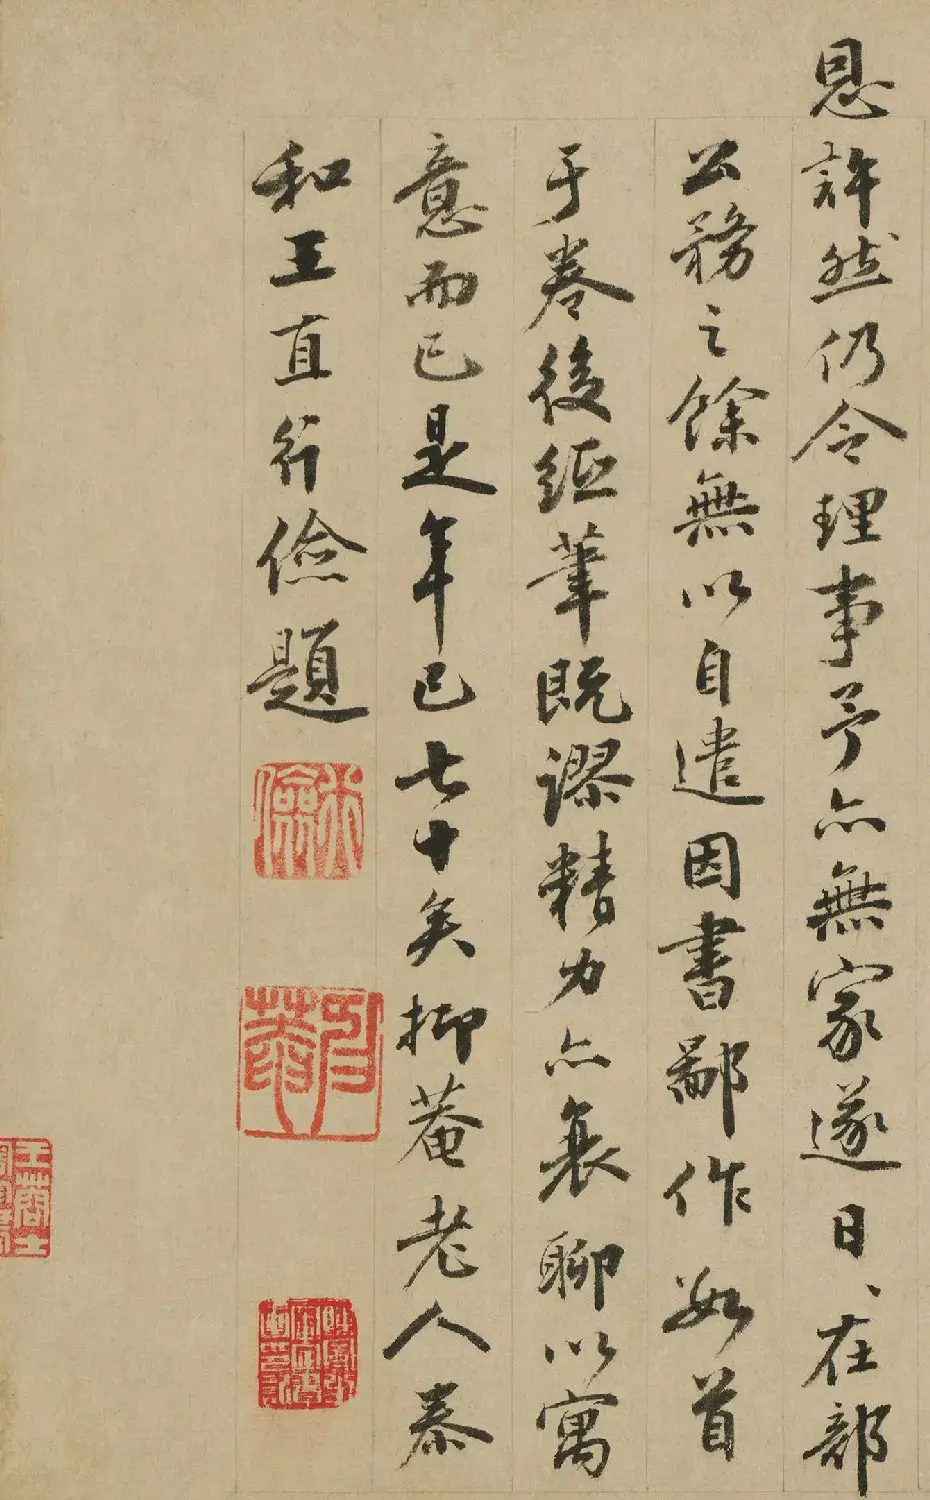 恩許然仍令理事予亦無家遂日、在部
公務之餘無以自遣因書鄙作數首
于卷後紙筆既謬精力亦衰聊以寓
意而已是年已七十矣抑菴老人泰
和王直行儉題